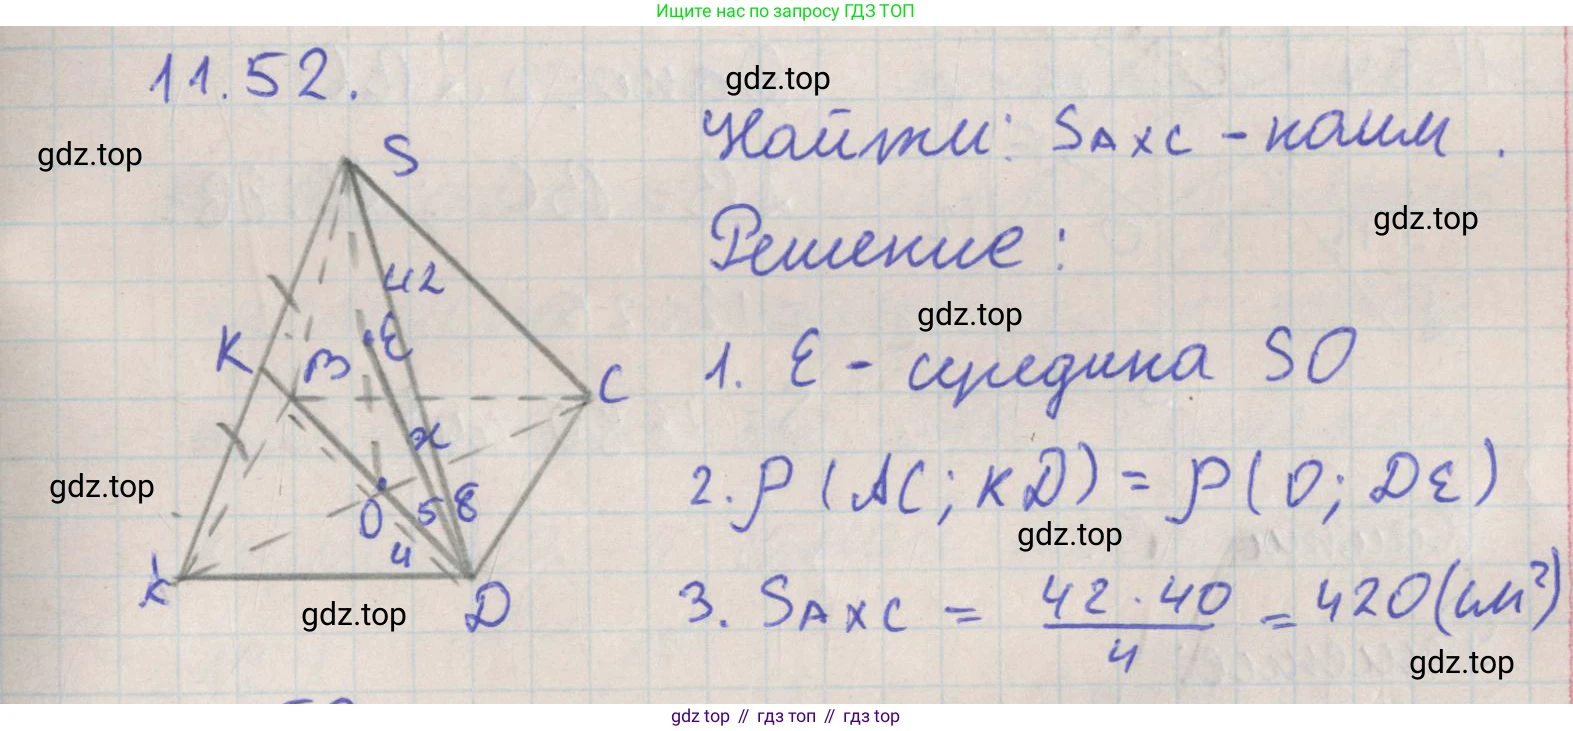 Ищите нас по запросу ГДЗ ТОП
11.52.
gdz.top
Найти: SAXC - наим.
gdz.top
S
gdz.top
Решение:
42
gdz.top
K
B
E
1. E - середина SO
C
x
gdz.top
2. ρ(AC; KD) = ρ(O; DE)
O
58
gdz.top
4
D
gdz.top
3. SAXC = 42·40/4 = 420(см²)
gdz.top
gdz top // гдз топ // гдз top